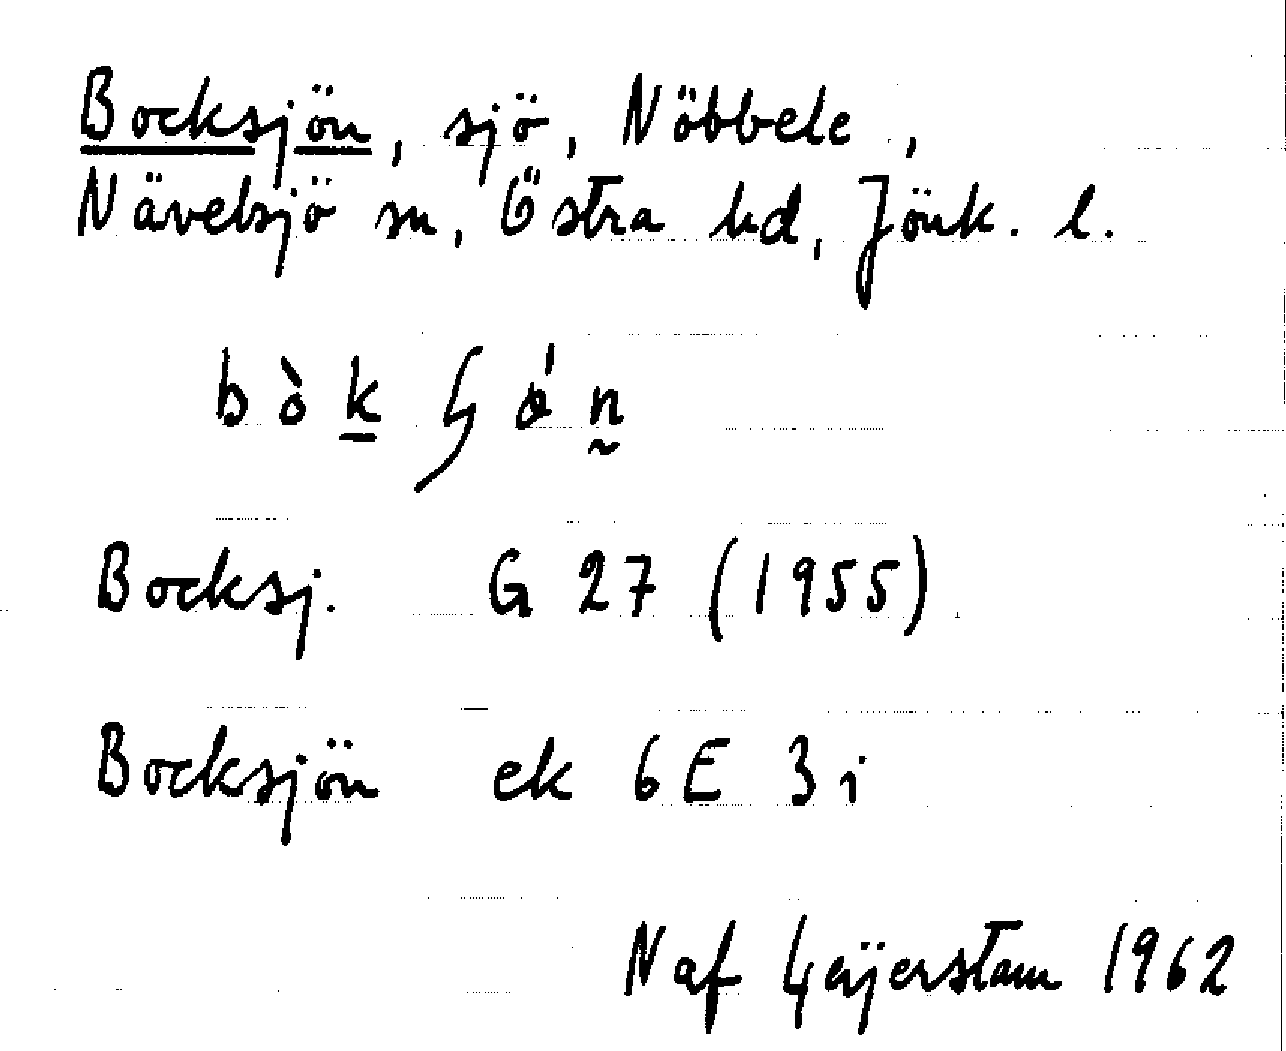 Bocksjön, sjö, Nöbbele,
Nävelsjö sn, Östra hd, Jönk. l.
Bocksj. G 27 (1955)
Bocksjön ek 6E 3i
N af Geijerstam 1962